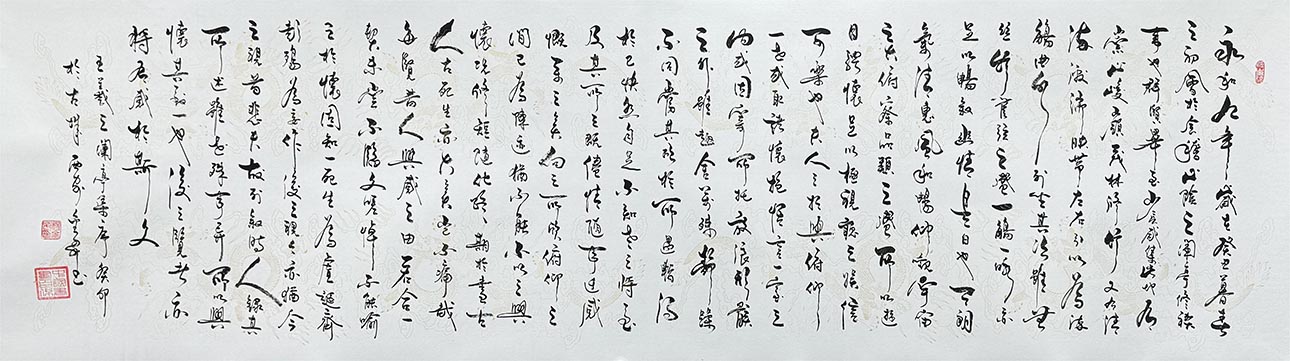 永和九年歲在癸丑暮春
之初會於會稽山陰之蘭亭修禊
事也群賢畢至少長咸集此地有
崇山峻領茂林修竹又有清
流激湍映帶左右引以為流
觴曲水列坐其次雖無
絲竹管弦之盛一觴一詠亦
足以暢敘幽情是日也天朗
氣清惠風和暢仰觀宇宙
之大俯察品類之盛所以遊
目騁懷足以極視聽之娛信
可樂也夫人之相與俯仰
一世或取諸懷抱悟言一室之
內或因寄所托放浪形骸
之外雖趣舍萬殊靜躁
不同當其欣於所遇暫得
於己快然自足不知老之將至
及其所之既倦情隨事遷感
慨係之矣向之所欣俯仰之
間已為陳跡猶不能不以之興
懷況修短隨化終期於盡古
人云死生亦大矣豈不痛哉
每覽昔人興感之由若合一
契未嘗不臨文嗟悼不能喻
之於懷固知一死生為虛誕齊
彭殤為妄作後之視今亦猶今
之視昔悲夫故列敘時人錄其
所述雖世殊事異所以興
懷其致一也後之覽者亦
將有感於斯文
王羲之蘭亭集序癸卯
於古